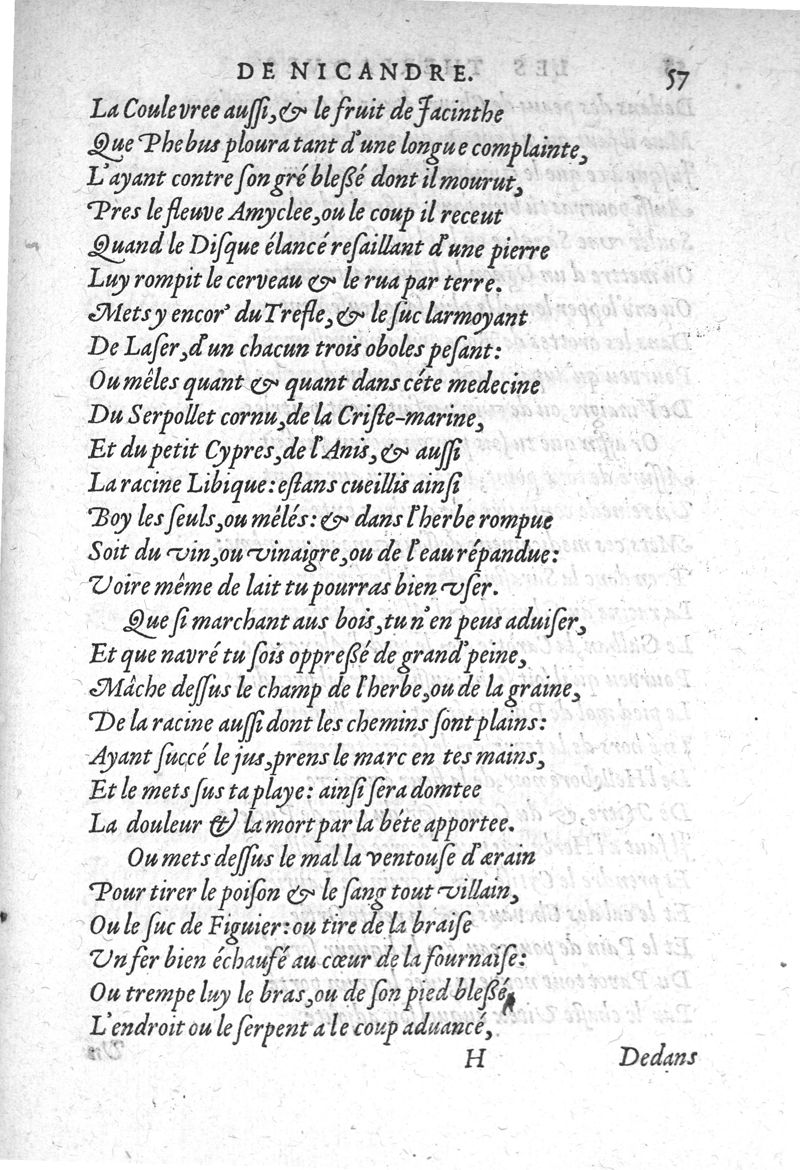 DE NICANDRE. 57
La Coulevree aussi, & le fruit de Jacinthe
Que Phebus ploura tant d'une longue complainte,
L'ayant contre son gré blessé dont il mourut,
Pres le fleuve Amyclee, ou le coup il receut
Quand le Disque élancé resaillant d'une pierre
Luy rompit le cerveau & le rua par terre.
Mets y encor' du Trefle, & le suc larmoyant
De Laser, d'un chacun trois oboles pesant:
Ou mêles quant & quant dans céte medecine
Du Serpollet cornu, de la Criste-marine,
Et du petit Cypres, de l'Anis, & aussi
La racine Libique: estans cueillis ainsi
Boy les seuls, ou mêlés: & dans l'herbe rompue
Soit du vin, ou vinaigre, ou de l'eau répandue:
Voire même de lait tu pourras bien vser.
Que si marchant aus bois, tu n'en peus aduiser,
Et que navré tu sois oppressé de grand' peine,
Mâche dessus le champ de l'herbe, ou de la graine,
De la racine aussi dont les chemins sont plains:
Ayant succé le jus, prens le marc en tes mains,
Et le mets sus ta playe: ainsi sera domtee
La douleur & la mort par la béte apportee.
Ou mets dessus le mal la ventouse d'ærain
Pour tirer le poison & le sang tout villain,
Ou le suc de Figuier: ou tire de la braise
Un fer bien échaufé au cœur de la fournaise:
Ou trempe luy le bras, ou de son pied blessé,
L'endroit ou le serpent a le coup aduancé,
H Dedans